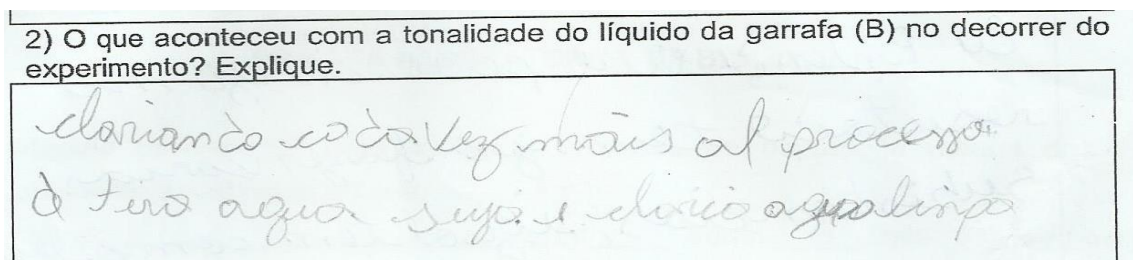 2) O que aconteceu com a tonalidade do líquido da garrafa (B) no decorrer do
experimento? Explique.
clariando cada vez mais al processo
à tira agua suja e claria agua limpa